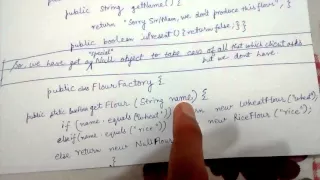 public string getName() {
return "Sorry Sir/Mam, we don't produce this flour";
}
public boolean isPresent() {return false;}}
"special"
So we have got a Null object to take case of all that which client asks
but we dont have.
public class FlourFactory {
public static getFlour (String name) {
if (name.equals("Wheat")) new WheatFlour("Wheat");
else if (name.equals("rice") new RiceFlour ("rice");
else return new
}